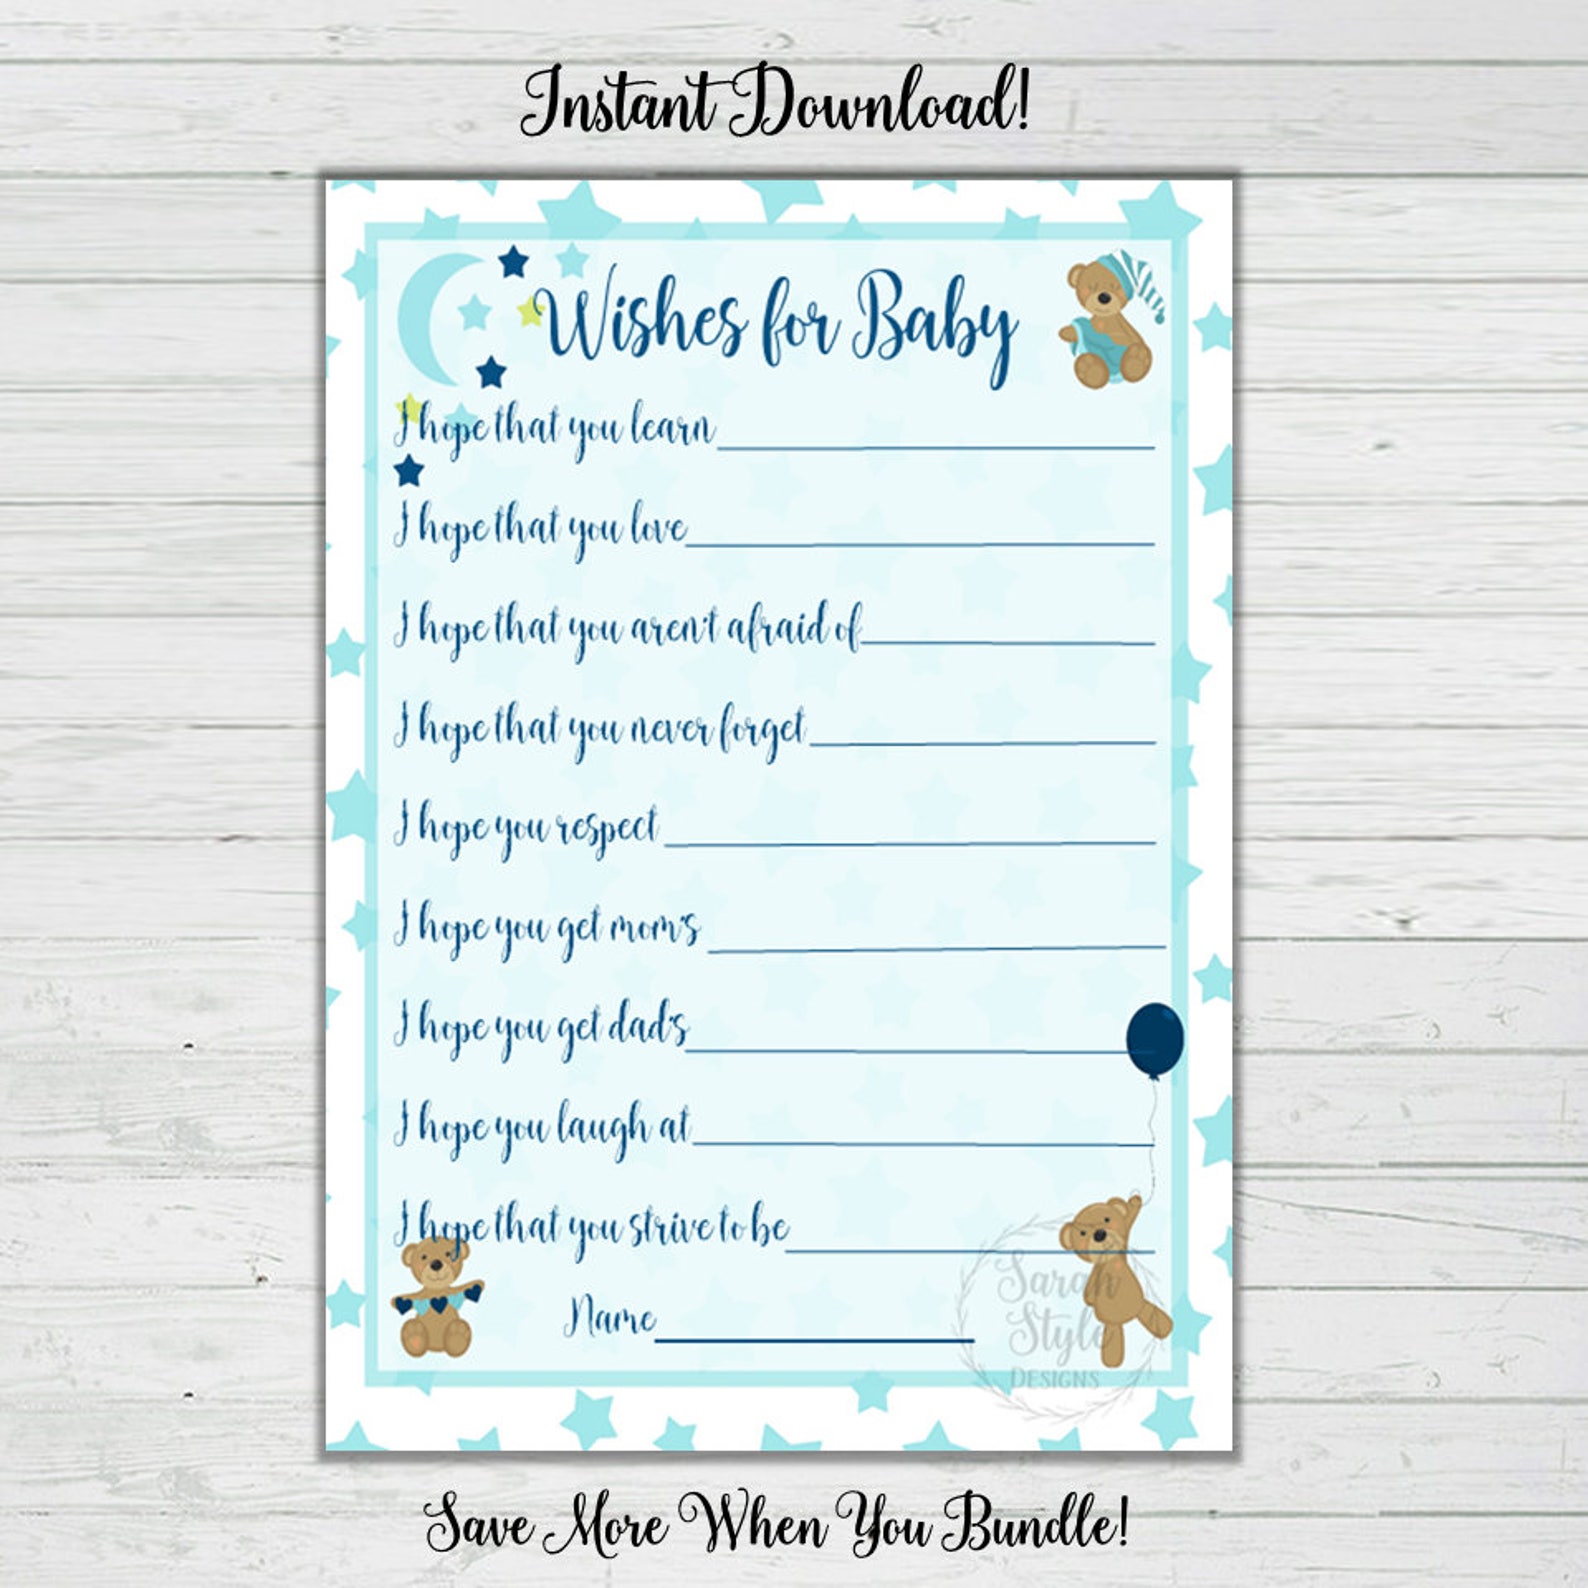 Instant Download!
Wishes for Baby
I hope that you learn
I hope that you love
I hope that you aren't afraid of
I hope that you never forget
I hope you respect
I hope you get mom's
I hope you get dad's
I hope you laugh at
I hope that you strive to be
Name
Sarah
Style
DESIGNS
Save More When You Bundle!